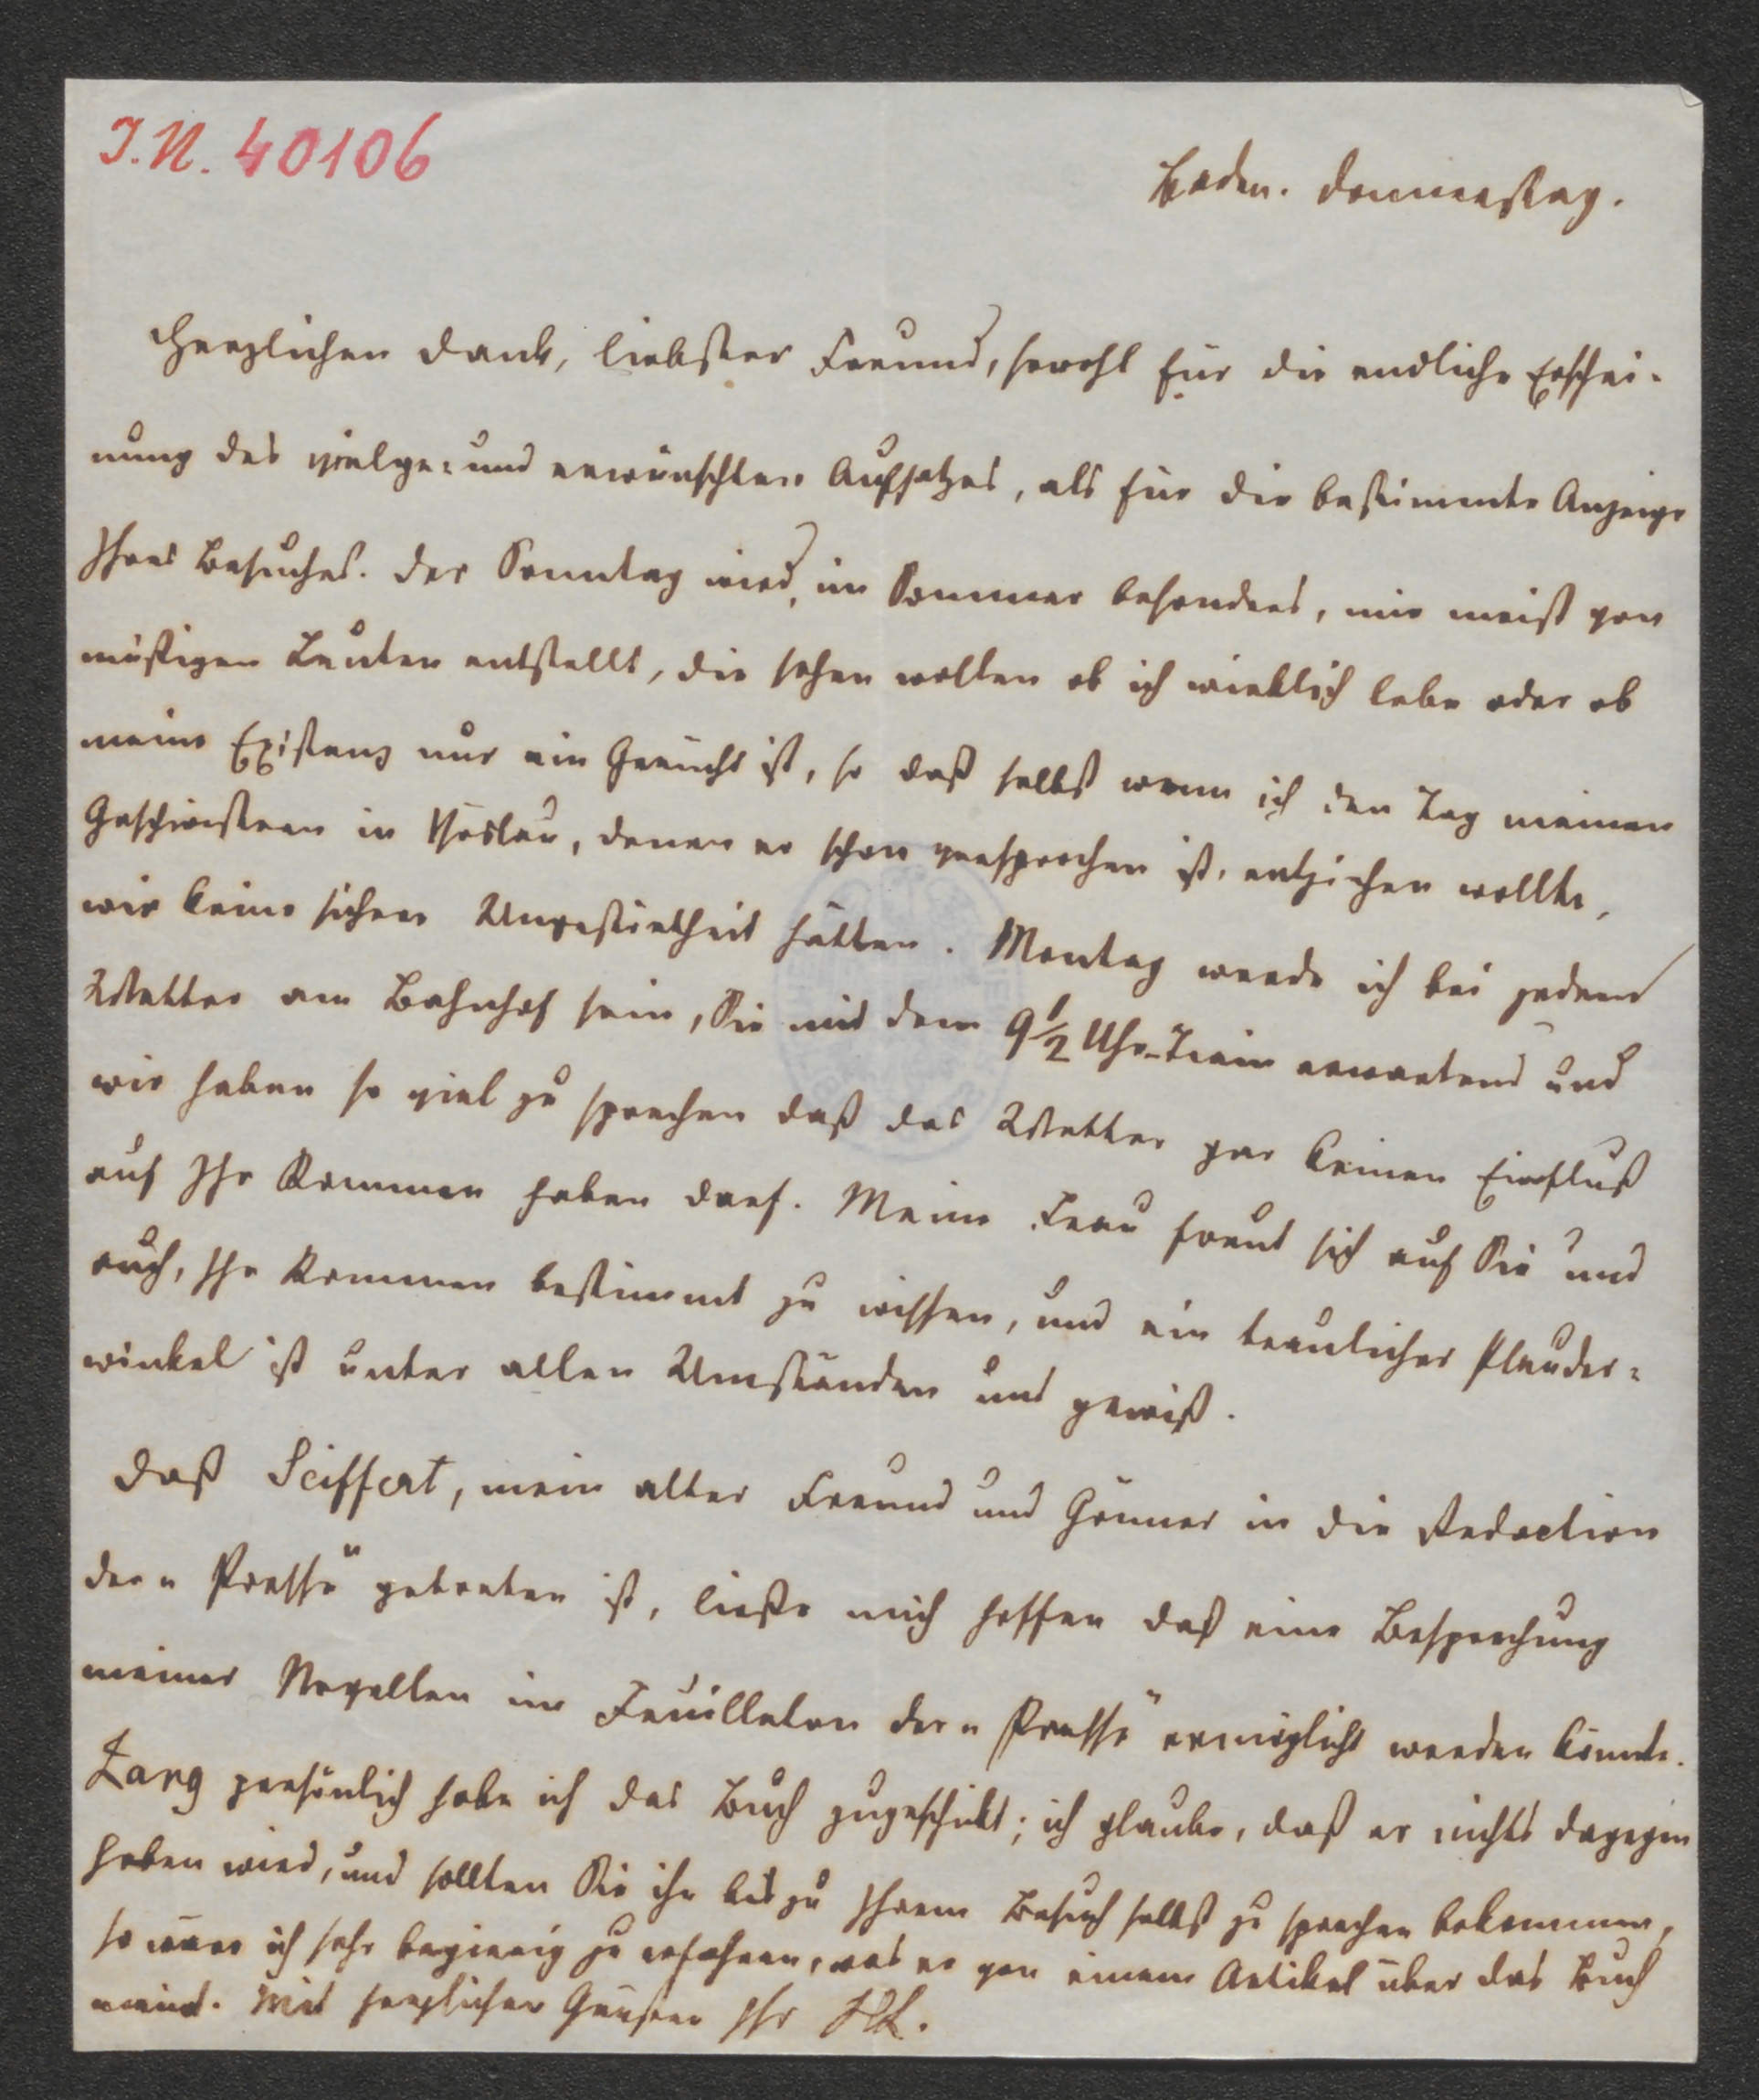 J. N. 40106
Baden. Donnerstag.
Herzlichen Dank, liebster Freund, sowohl für die endliche Erschei-
nung des vielge- und erwünschten Aufsatzes, als für die bestimmte Anzeige
Ihres Besuches. Der Sonntag wird, im Sommer besonders, mir meist von
müßigen Leuten entstellt, die sehen wollen ob ich wirklich lebe oder ob
meine Existenz nur ein Gerücht ist, so daß selbst wenn ich den Tag meinen
Geschwistern in Vöslau, denen er schon versprochen ist, entziehen wollte,
wir keine sichere Ungestörtheit hätten. Montag werde ich bei jedem
Wetter am Bahnhof sein, Sie mit dem 9 1/2 Uhr-Train erwartend und
wir haben so viel zu sprechen daß das Wetter gar keinen Einfluß
auf Ihr Kommen haben darf. Meine Frau freut sich auf Sie und
auch, Ihr Kommen bestimmt zu wissen, und ein traulicher Plauder-
winkel ist unter allen Umständen uns gewiß.
Daß Seiffert, mein alter Freund und Gönner in die Redaction
der „Presse" getreten ist, ließe mich hoffen daß eine Besprechung
meiner Novellen im Feuilleton der „Presse" ermöglicht werden könnte.
Zang persönlich habe ich das Buch zugeschickt; ich glaube, daß er nichts dagegen
haben wird, und sollten Sie ihn bis zu Ihrem Besuch selbst zu sprechen bekommen,
so wäre ich sehr begierig zu erfahren, was er von einem Artikel über das Buch
meint. Mit herzlichen Grüßen Ihr